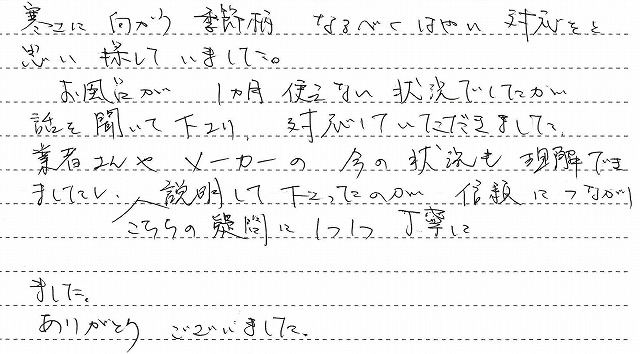 寒さに向かう季節柄 なるべくはやい対応をと
思い探していました。
お風呂が 1ヵ月使えない状況でしたが
話を聞いて下さり、対応していただきました。
業者さんやメーカーの今の状況も理解でき
ましたし、説明して下さったのが信頼につながり
こちらの疑問に1つ1つ丁寧に
ました。
ありがとうございました。